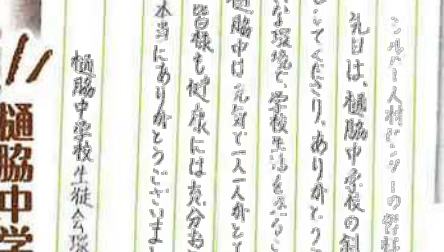 シルバー人材センターの皆様
先日は、樋脇中学校の剪
してくださり、ありがとう
な環境で、学校生活を送るこ
樋脇中は元気で一人一人がとて
皆様も健康には充分お
本当にありがとうございま
樋脇中学校生徒会環
樋脇中学